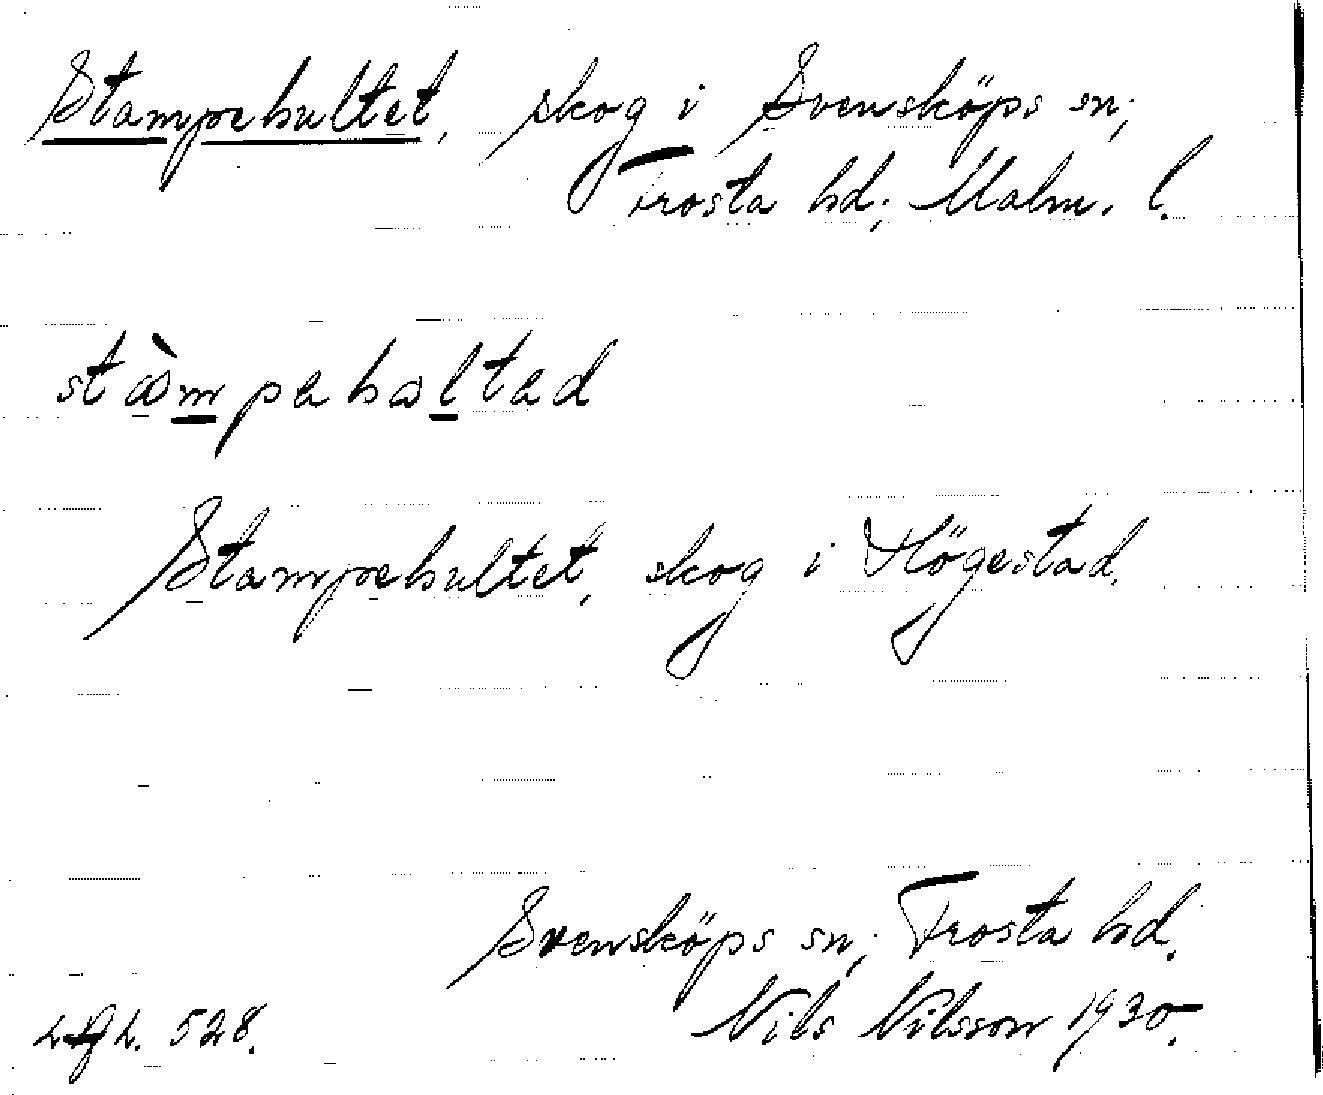 Stampehultet, skog i Svensköps sn;
Trosta hd; Malm. l.
stàmpehaltad
Stampehultet, skog i Högestad.
Svensköps sn; Frosta hd.
Nils Nilsson 1930.
528.